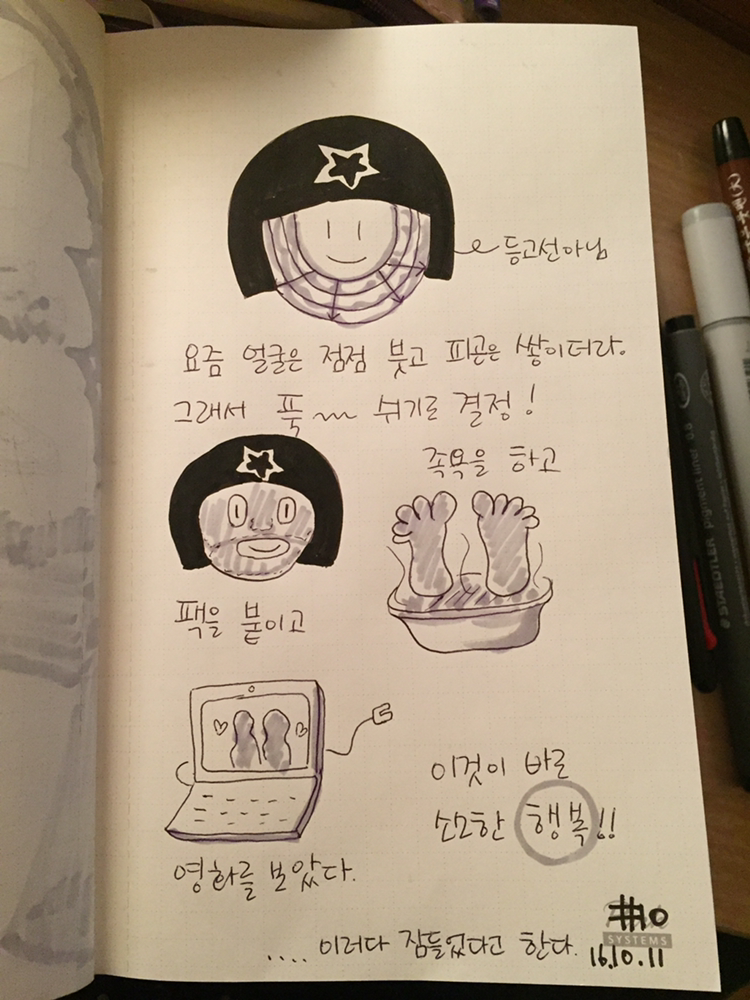 등고선아님
요즘 얼굴은 점점 붓고 피곤은 쌓이더라.
그래서 푹~ 쉬기로 결정!
족욕을 하고
팩을 붙이고
이것이 바로
소소한 행복!!
영화를 보았다.
.... 이러다 잠들었다고 한다.
SYSTEMS
16.10.11
STAEDTLER pigment liner